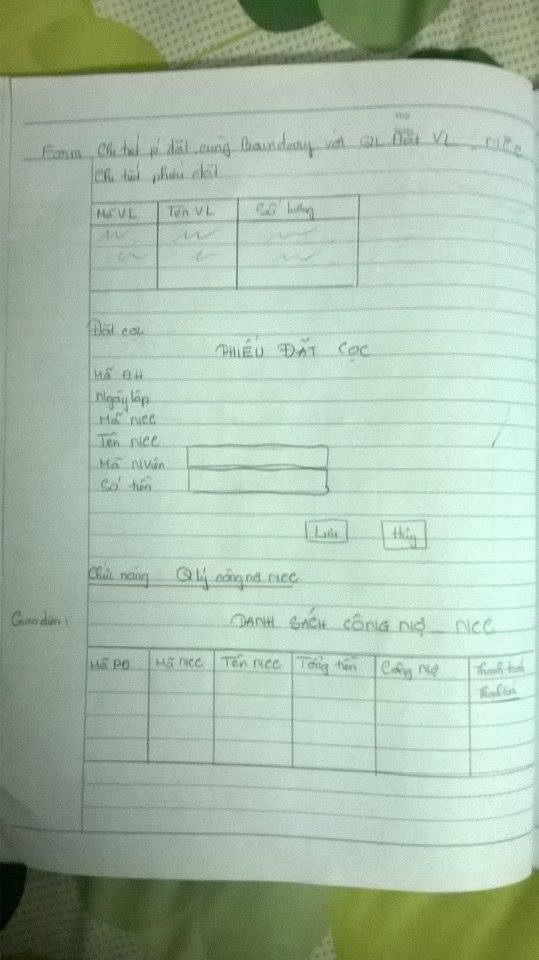 Form Chi tiết p đặt cùng Boundary với QL Đặt VL _ NCC
Chi tiết phiếu đặt
Mã VL Tên VL Số lượng
Đặt cọc
PHIẾU ĐẶT CỌC
Mã ĐH
Ngày lập
Mã NCC
Tên NCC
Mã NViên
Số tiền
Lưu Hủy
Chức năng: Q lý công nợ NCC
Giao diện:
DANH SÁCH CÔNG NỢ _ NCC
Mã PĐ Mã NCC Tên NCC Tổng tiền Công Nợ Thanh toán
Thanh toán